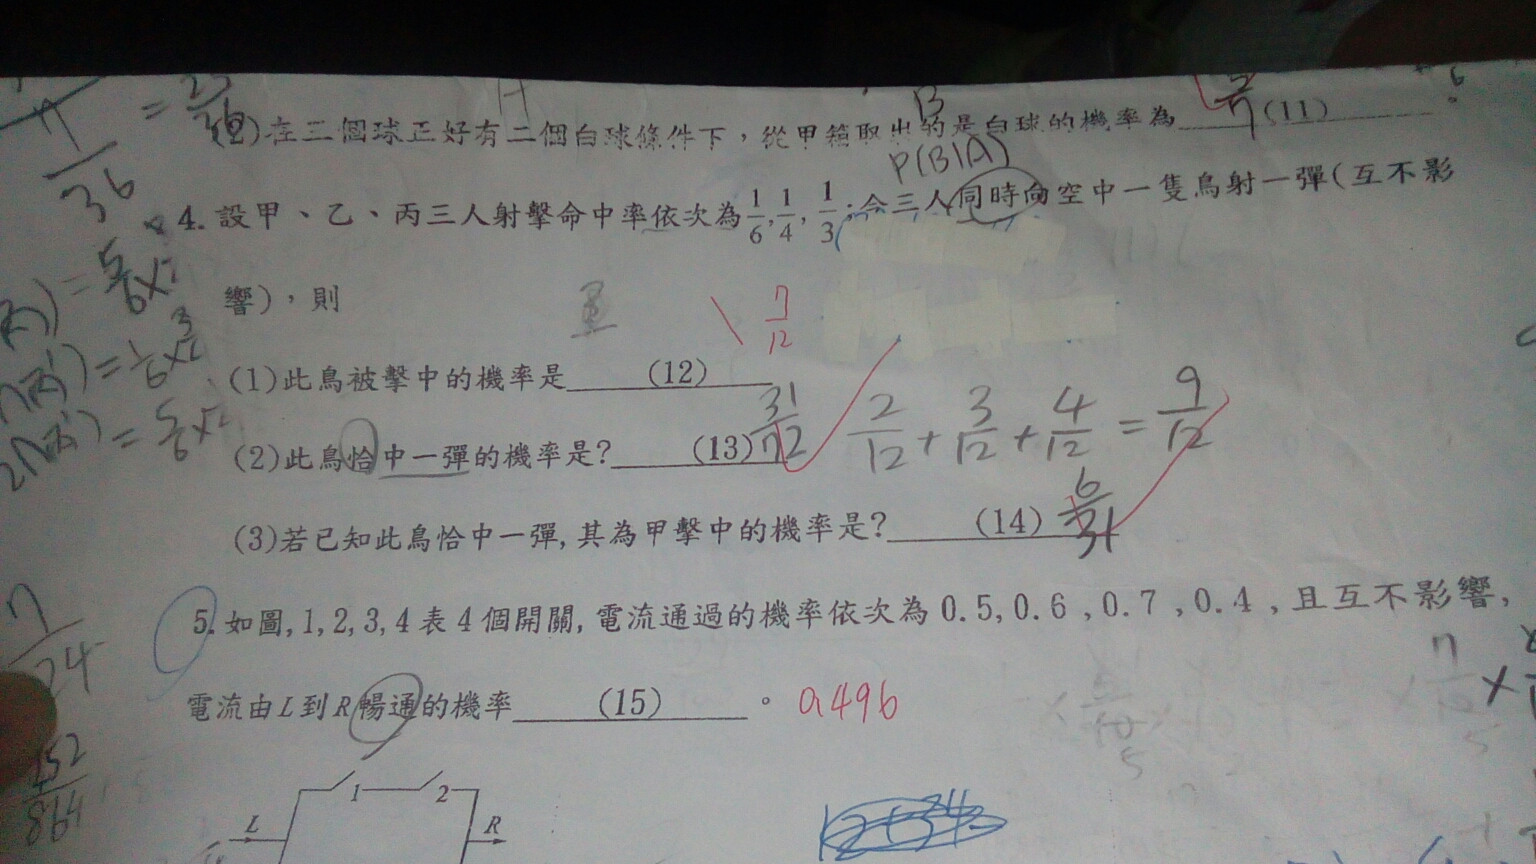 (2)在三個球正好有二個白球條件下，從甲箱取出的是白球的機率為 (11)
B
P(B|A)
4. 設甲、乙、丙三人射擊命中率依次為 1/6, 1/4, 1/3；令三人同時向空中一隻鳥射一彈(互不影
響)，則
7/12
(1)此鳥被擊中的機率是 (12)
(2)此鳥恰中一彈的機率是? (13) 31/72
2/12 + 3/12 + 4/12 = 9/12
(3)若已知此鳥恰中一彈,其為甲擊中的機率是? (14) 6/31
5. 如圖,1,2,3,4表4個開關,電流通過的機率依次為0.5,0.6,0.7,0.4,且互不影響,
電流由L到R暢通的機率 (15) 。 0.496
1 2
L R
7/24